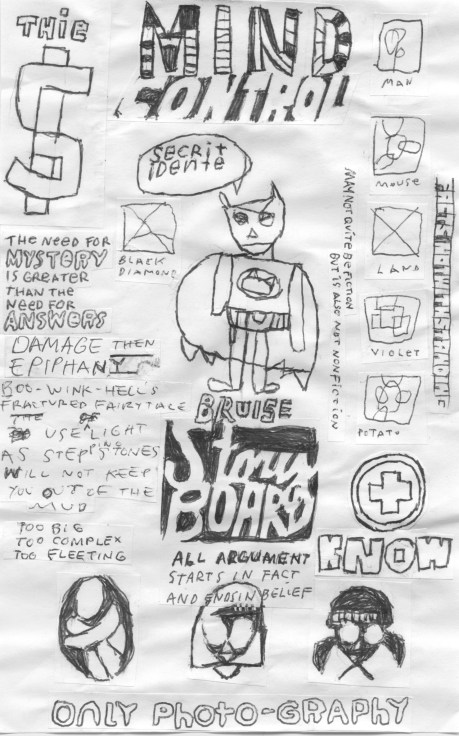 THIE
$
MIND
CONTROL
MAN
SECRIT
IDENTE
MOUSE
BLACK
DIAMOND
MAY NOT QUITE BE FICTION
BUT IS ALSO NOT NONFICTION
LAND
THE NEED FOR
MYSTERY
IS GREATER
THAN THE
NEED FOR
ANSWERS
VIOLET
DAMAGE THEN
EPIPHANY
POTATO
BOO-WINK-HELL'S
FRACTURED FAIRYTALE
USE LIGHT
AS STEPPINGSTONES
WILL NOT KEEP
YOU OUT OF THE
MUD
TOO BIG
TOO COMPLEX
TOO FLEETING
BRUISE
STORY
BOARD
ALL ARGUMENT
STARTS IN FACT
AND ENDS IN BELIEF
KNOW
ONLY PHOTO-GRAPHY